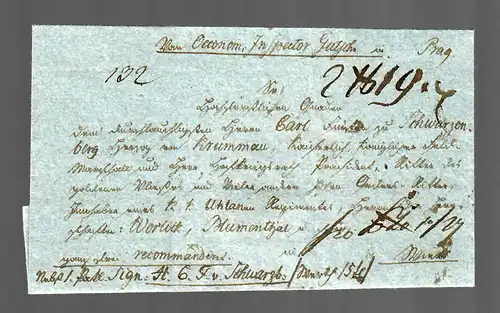 Vom Oeconom, Inspector Gutsch in Prag.
132
Sr
Hochfürstlichen Gnaden
dem durchlauchtigsten Herrn Carl Fürsten zu Schwarzen-
berg Herzog von Krummau, Kaiserlich Königlicher Feld-
Marschall und Herr Hofkriegsrath Präsident, Ritter des
goldenen Vliesses und vieler anderer Orden Ritter,
Innhaber eines k. k. Uhlanen Regiments, Herrn der
schaften: Worlik, Blumenthal
ganz frei recommandirt. in Wien
Nebst 1. Pack Sign: H. C. F. v. Schwarzb.